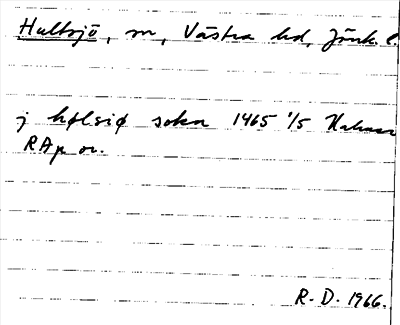 Hultsjö, sn, Västra hd, Jönk. l.
j hølsiø sokn 1465 1/5
RAp or.
R. D. 1966.